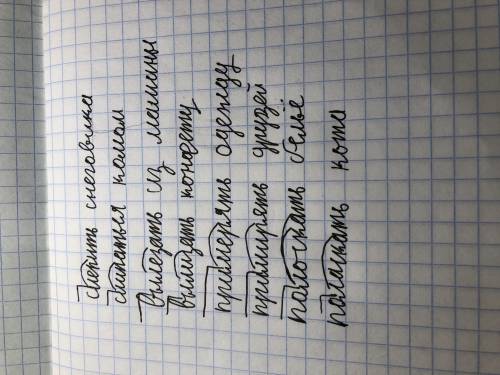 слепить снеговика
слипаться комом
вылезать из машины
вылизать конфету
примерять одежду
примирять друзей
полоскать бельё
поласкать кота